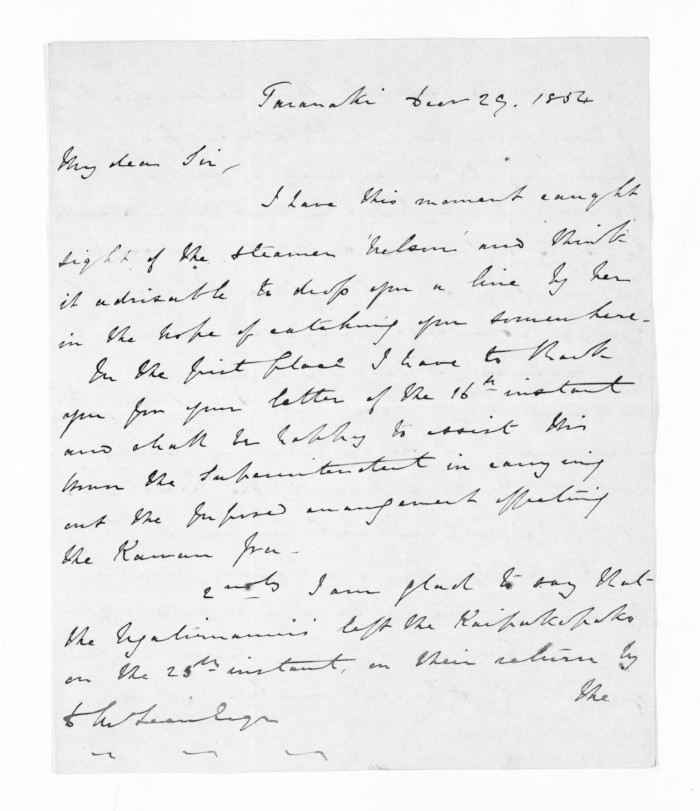 Taranaki Decr 29. 1854
My dear Sir,
I have this moment caught
sight of the steamer 'Nelson' and think
it advisable to drop you a line by her
in the hope of catching you somewhere.
In the first place I have to thank
you for your letter of the 16th instant
and shall be happy to assist His
Honor the Superintendent in carrying
out the proposed arrangement affecting
the Kawau pa.
2ndly I am glad to say that
the Ngatiruanui's left the Kaipakopako
on the 25th instant, on their return by
the
D McLean Esqr